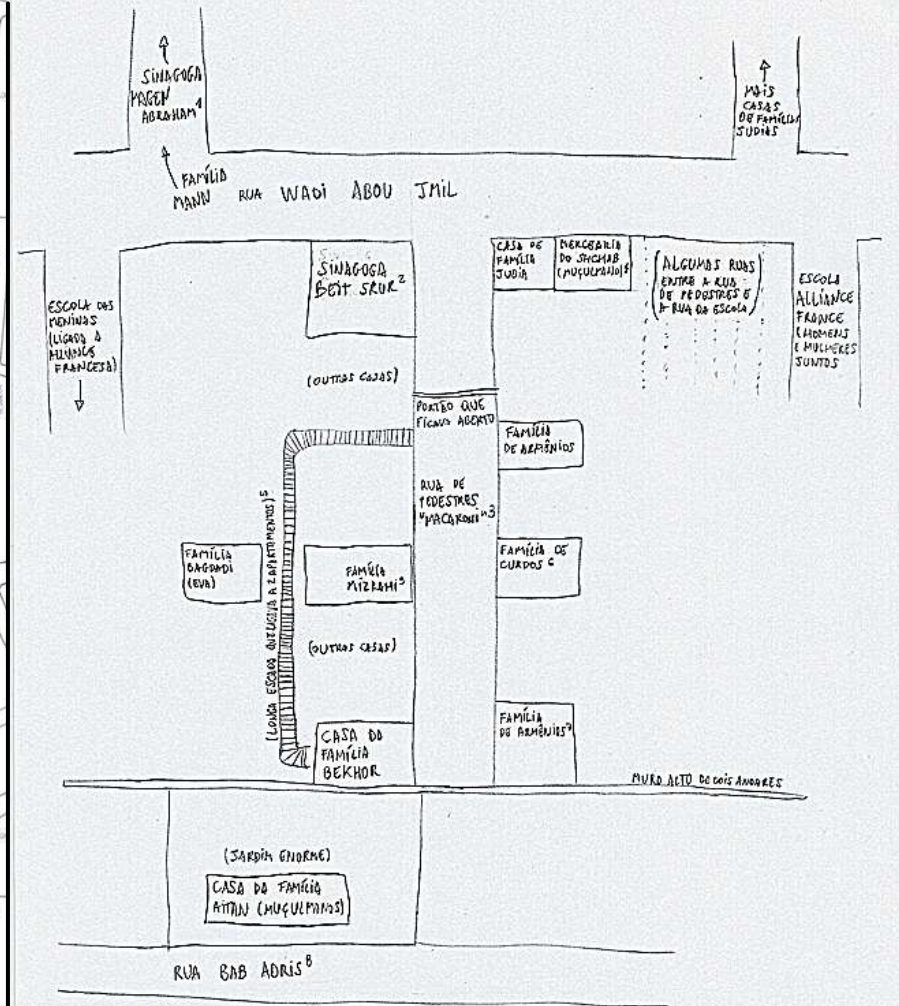 SINAGOGA
MAGEN
ABRAHAM¹
MAIS
CASAS
DE FAMÍLIAS
JUDIAS
FAMÍLIA
MANN
RUA WADI ABOU JMIL
ESCOLA DAS
MENINAS
(LIGADA A
ALLIANCE
FRANCESA)
SINAGOGA
BEIT SRUR²
CASA DE
FAMÍLIA
JUDIA
MERCEARIA
DO SHCHAB
(MUÇULMANO)⁴
(ALGUMAS RUAS
ENTRE A RUA
DE PEDESTRES E
A RUA DA ESCOLA)
ESCOLA
ALLIANCE
FRANCE
(HOMENS
E MULHERES
JUNTOS
(OUTRAS CASAS)
PORTÃO QUE
FICAVA ABERTO
FAMÍLIA
DE ARMÊNIOS
RUA DE
PEDESTRES
"MACARONI"³
(LONGA ESCADA QUE LIGAVA A 2 APARTAMENTOS)⁵
FAMÍLIA
BAGDADI
(EVA)
FAMÍLIA
MIZRAHI⁵
FAMÍLIA DE
CURDOS⁶
(OUTRAS CASAS)
CASA DA
FAMÍLIA
BEKHOR
FAMÍLIA
DE ARMÊNIOS⁷
MURO ALTO DE DOIS ANDARES
(JARDIM ENORME)
CASA DA FAMÍLIA
AITAN (MUÇULMANOS)
RUA BAB ADRIS⁸